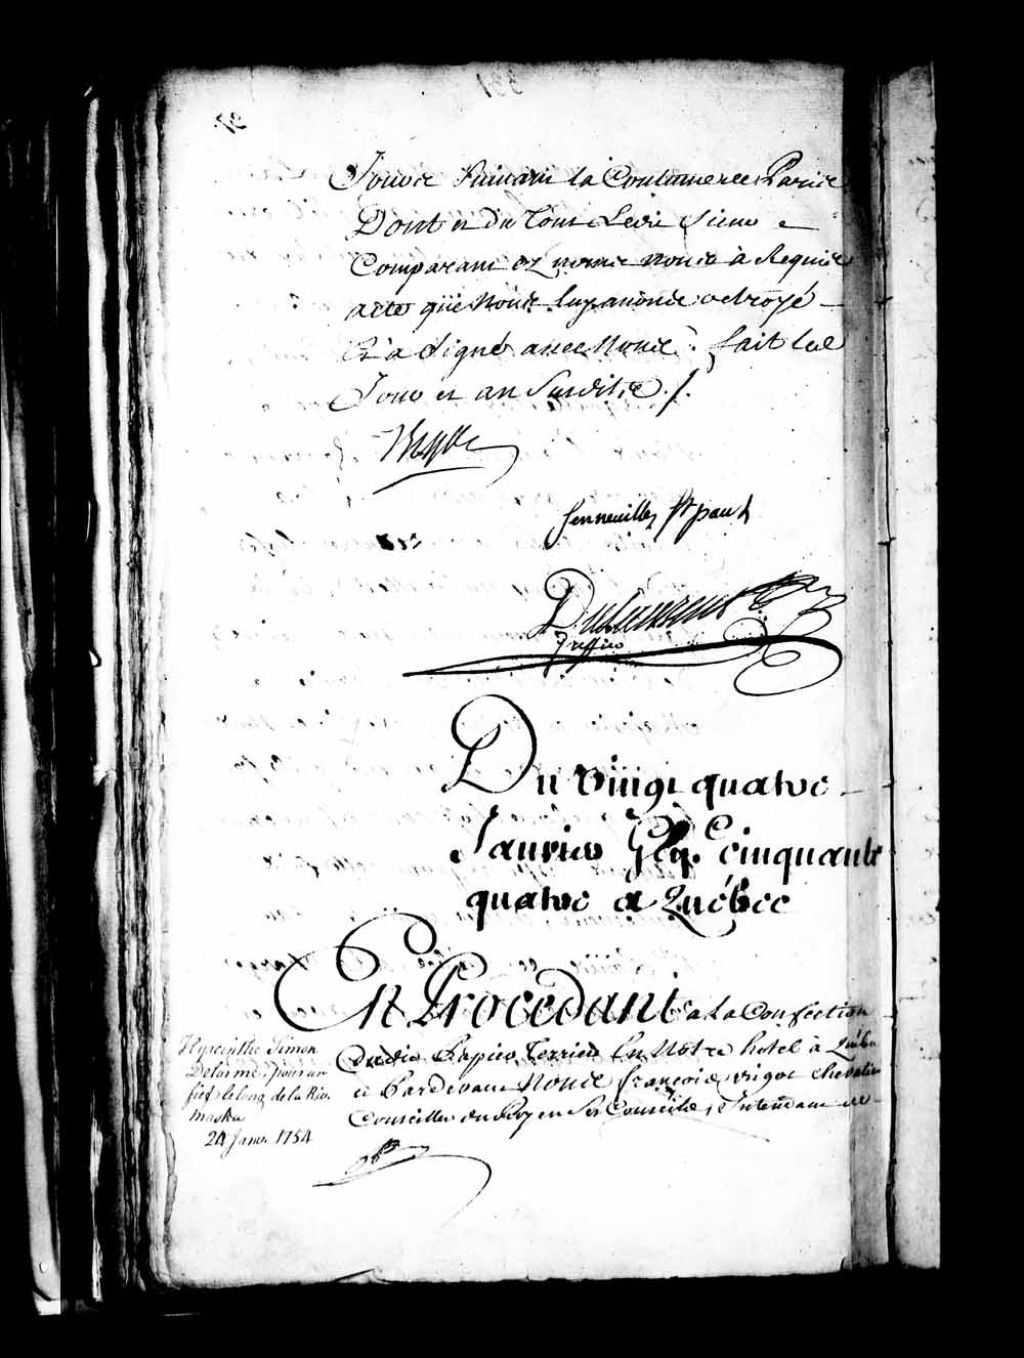 Jours suivant la Coutume de Paris
Dont et du Tout Ledit Sieur
Comparant ez noms nous à Requis
acte que Nous luy avons octroyé
Et a signé avec Nous ; fait les
Jour et an Susdits ./.
Senneville St paul
Dulaurent
Greffier
Du Vingt quatre
Janvier Gbij.C Cinquante
quatre a Québec
En Procedant a La Confection
Dudit Papier Terrier En Notre hotel à Québec
Pardevant Nous françois Bigot Chevalier
Conseiller du Roy en Ses Conseils, Intendant &
Hyacinthe Simon
Delorme pour un
fief le long de la Riv.
maska
24 Janv. 1754